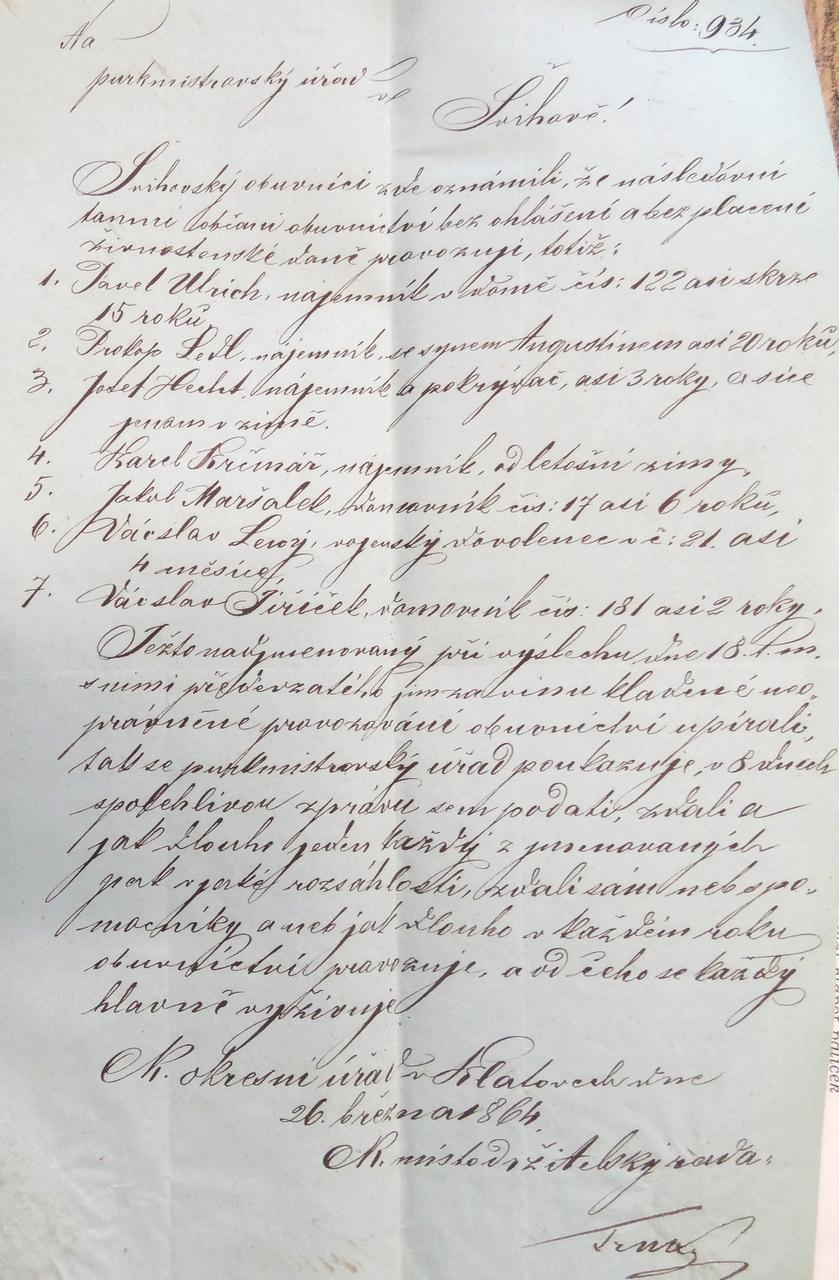 Číslo: 934.
Na
purkmistrovský úřad
ve
Švihově!
Švihovský obuvníci zde oznámili, že následovní
tamní občani obuvnictví bez ohlášení a bez placení
živnostenské daně provozují, totiž:
1. Pavel Ulrich, nájemník v domě čís: 122 asi skrze
15 roků,
2. Prokop Ledl, nájemník, se synem Augustinem asi 20 roků,
3. Josef Hecht, nájemník a pokrývač, asi 3 roky, a sice
jenom v zimě.
4. Karel Krčmář, nájemník, od letošní zimy,
5. Jakob Maršalek, domovník čís: 17 asi 6 roků,
6. Václav Lewý, vojenský dovolenec v č: 21. asi
4 měsíce,
7. Václav Jiříček, domovník čís: 181 asi 2 roky.
Ježto nadjmenovaný při výslechu dne 18. t. m.
s nimi předevzatého jim za vinu kladené neo-
právněné provozování obuvnictví upírali,
tak se purkmistrovský úřad poukazuje, v 8 dnech
spolehlivou zprávu sem podati, zdali a
jak dlouho jeden každý z jmenovaných
pak v jaké rozsáhlosti, zdali sám neb s po-
mocníky a neb jak dlouho v každém roku
obuvnictví provozuje, a od čeho se každý
hlavně vyživuje.
K. okresní úřad v Klatovech dne
26. března 1864.
K. místodržitelský rada: